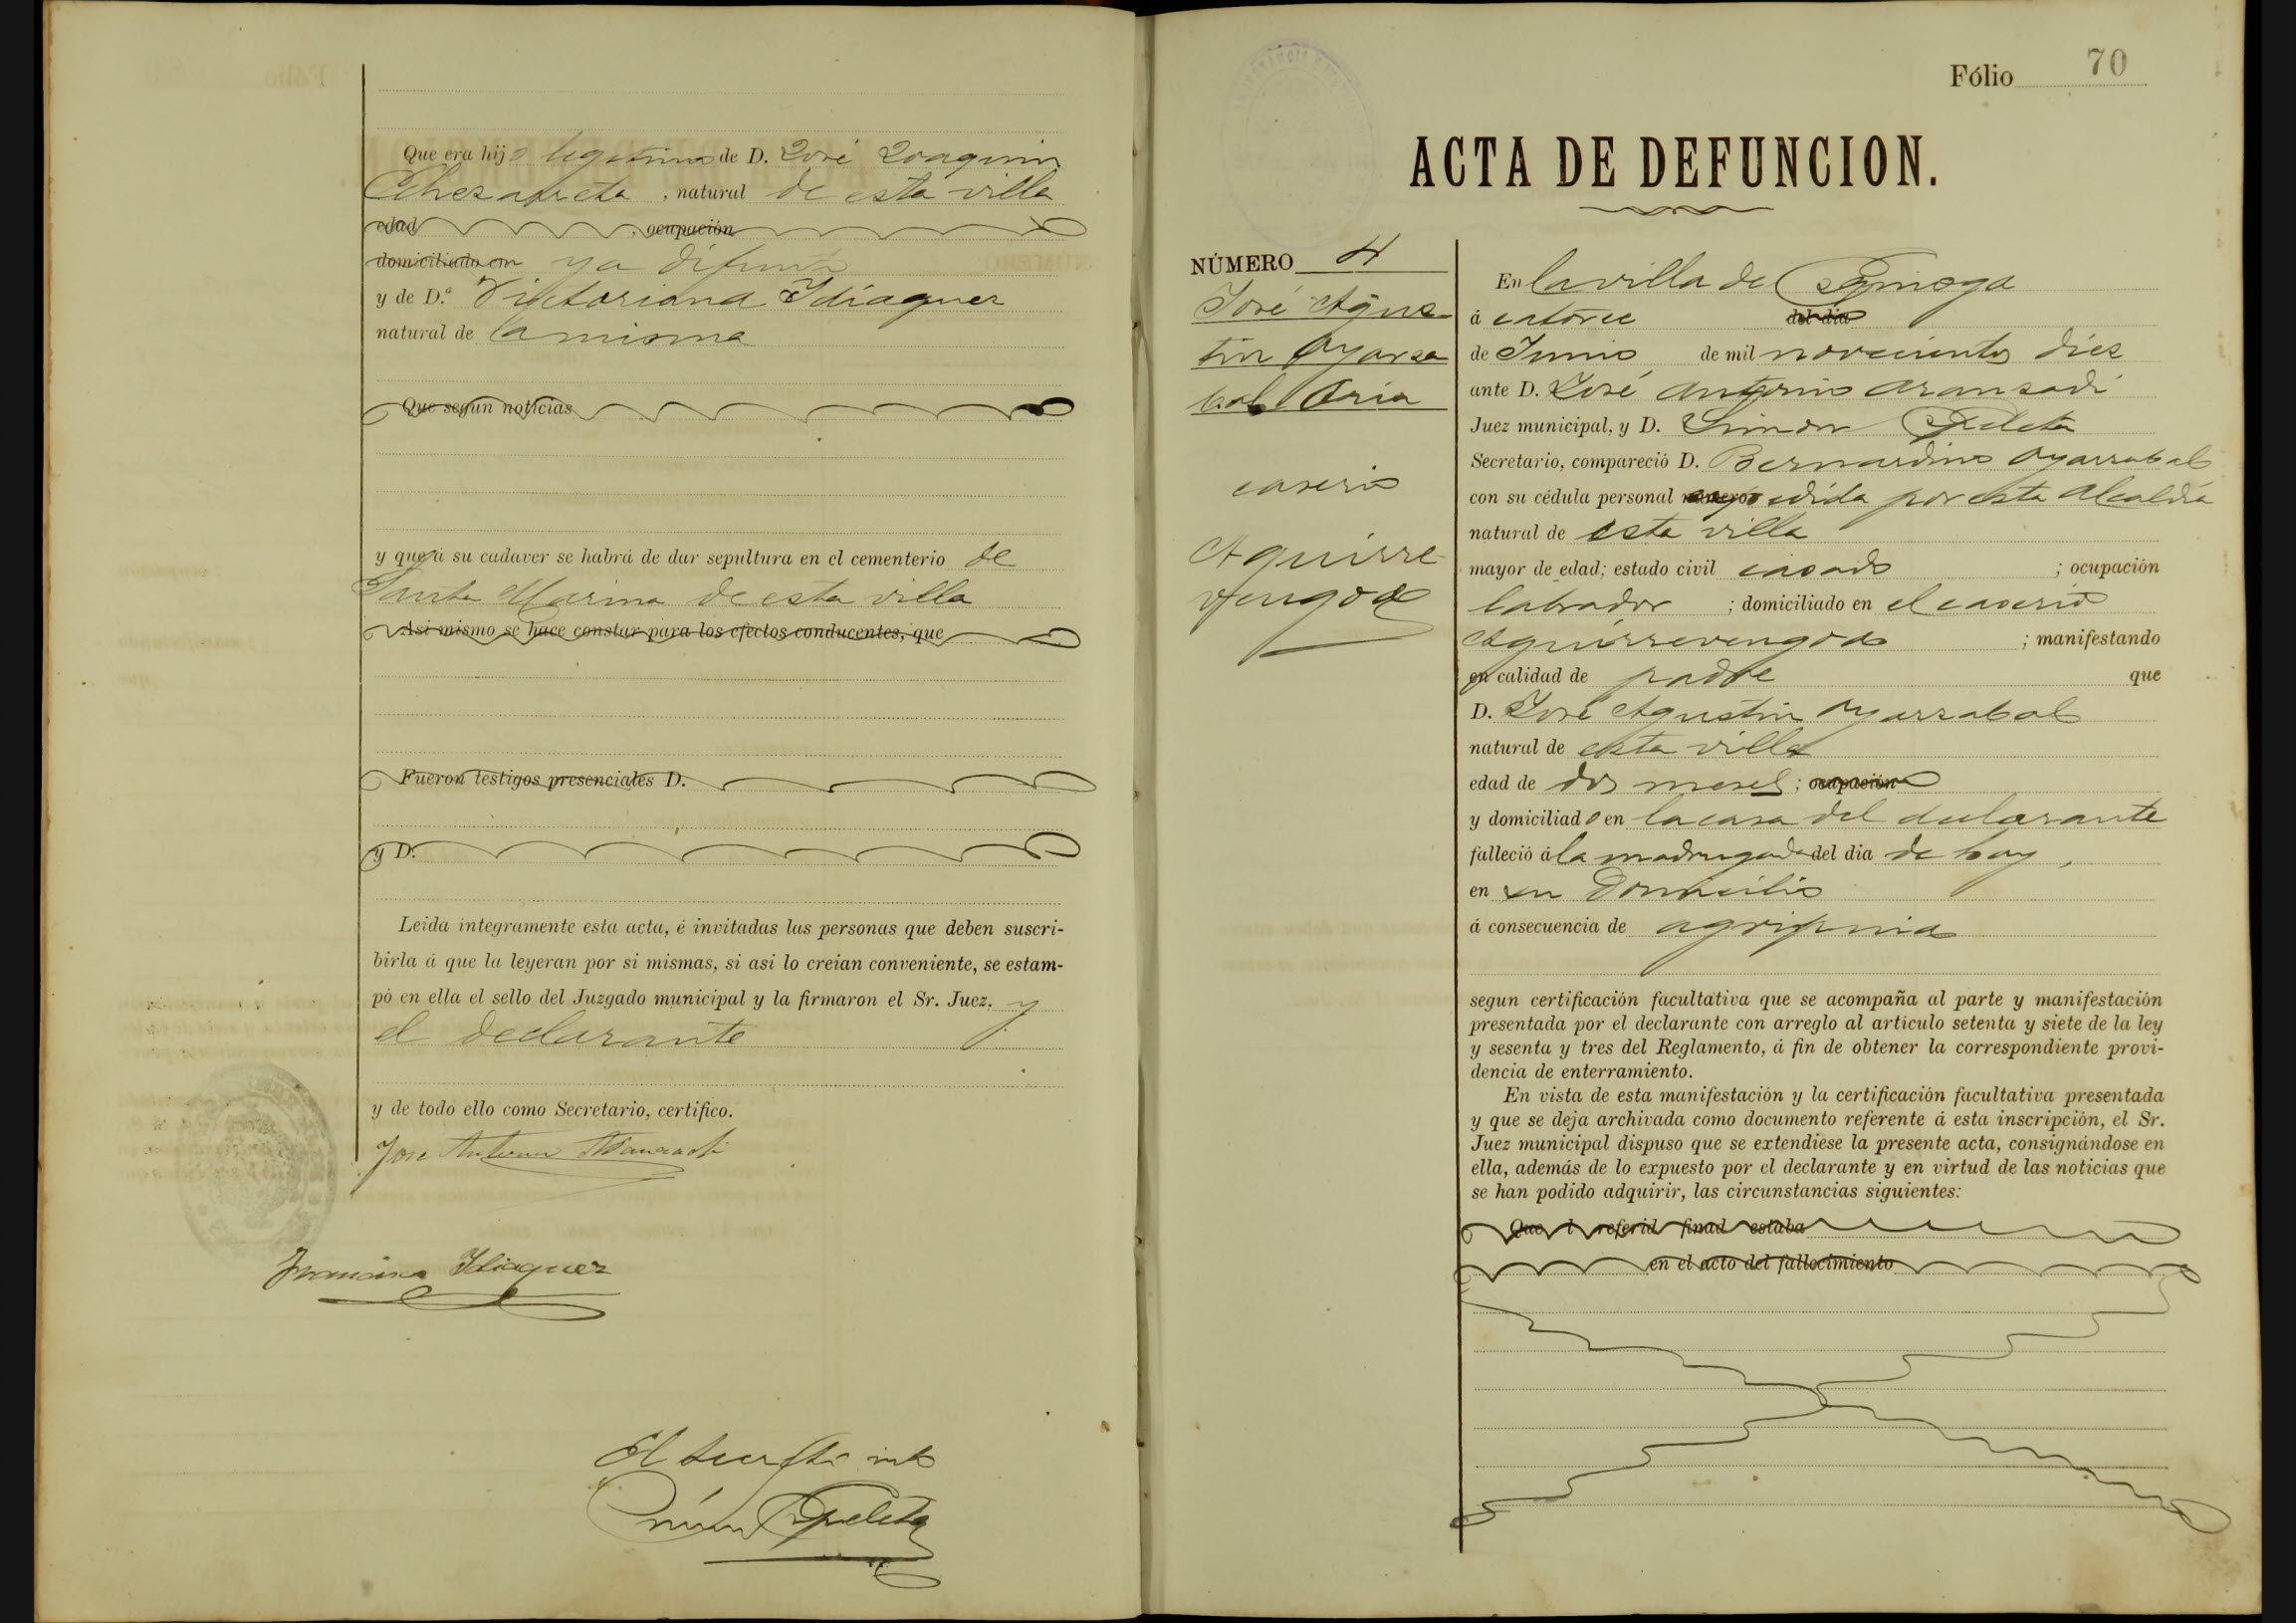 Que era hijo legitimo de D. José Joaquin
Echezarreta, natural de esta villa
edad , ocupación
domiciliado en ya difunto
y de D.ª Victoriana Idiaquez
natural de la misma
Que segun noticias
y que á su cadaver se habrá de dar sepultura en el cementerio de
Santa Marina de esta villa
Asi mismo se hace constar para los efectos conducentes, que
Fueron testigos presenciales D.
y D.
Leida integramente esta acta, é invitadas las personas que deben suscri-
birla á que la leyeran por si mismas, si asi lo creian conveniente, se estam-
pó en ella el sello del Juzgado municipal y la firmaron el Sr. Juez. y
el declarante
y de todo ello como Secretario, certifico.
José Antonio Aranzadi
Francisco Idiaquez
El
Simon
Fólio 70
ACTA DE DEFUNCION.
NÚMERO 4
José Agus-
tin Oyarza-
bal Oria
caserio
Aguirre-
vengoa
En la villa de
á catorce del dia
de Junio de mil novecientos diez
ante D. José Antonio Aranzadi
Juez municipal, y D. Simon
Secretario, compareció D. Bernardino Oyarzabal
con su cédula personal número expedida por esta Alcaldia
natural de esta villa
mayor de edad; estado civil casado ; ocupación
labrador ; domiciliado en el caserio
Aguirrevengoa ; manifestando
en calidad de padre que
D. José Agustin Oyarzabal
natural de esta villa
edad de dos meses ; ocupación
y domiciliado en la casa del declarante
falleció á la madrugada del dia de hoy,
en su domicilio
á consecuencia de
segun certificación facultativa que se acompaña al parte y manifestación
presentada por el declarante con arreglo al articulo setenta y siete de la ley
y sesenta y tres del Reglamento, á fin de obtener la correspondiente provi-
dencia de enterramiento.
En vista de esta manifestación y la certificación facultativa presentada
y que se deja archivada como documento referente á esta inscripción, el Sr.
Juez municipal dispuso que se extendiese la presente acta, consignándose en
ella, además de lo expuesto por el declarante y en virtud de las noticias que
se han podido adquirir, las circunstancias siguientes:
Que l referid finad estaba
en el acto del fallecimiento